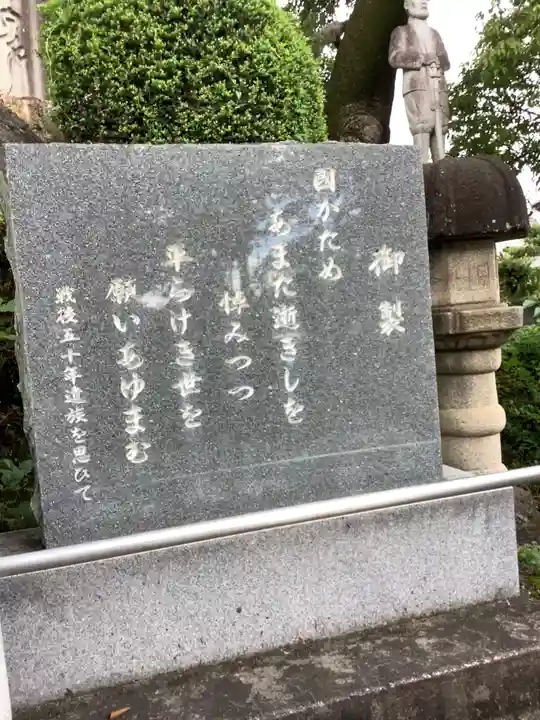 御製
國がため
あまた逝きしを
悼みつつ
平らけき世を
願いあゆまむ
戦後五十年遺族を思ひて